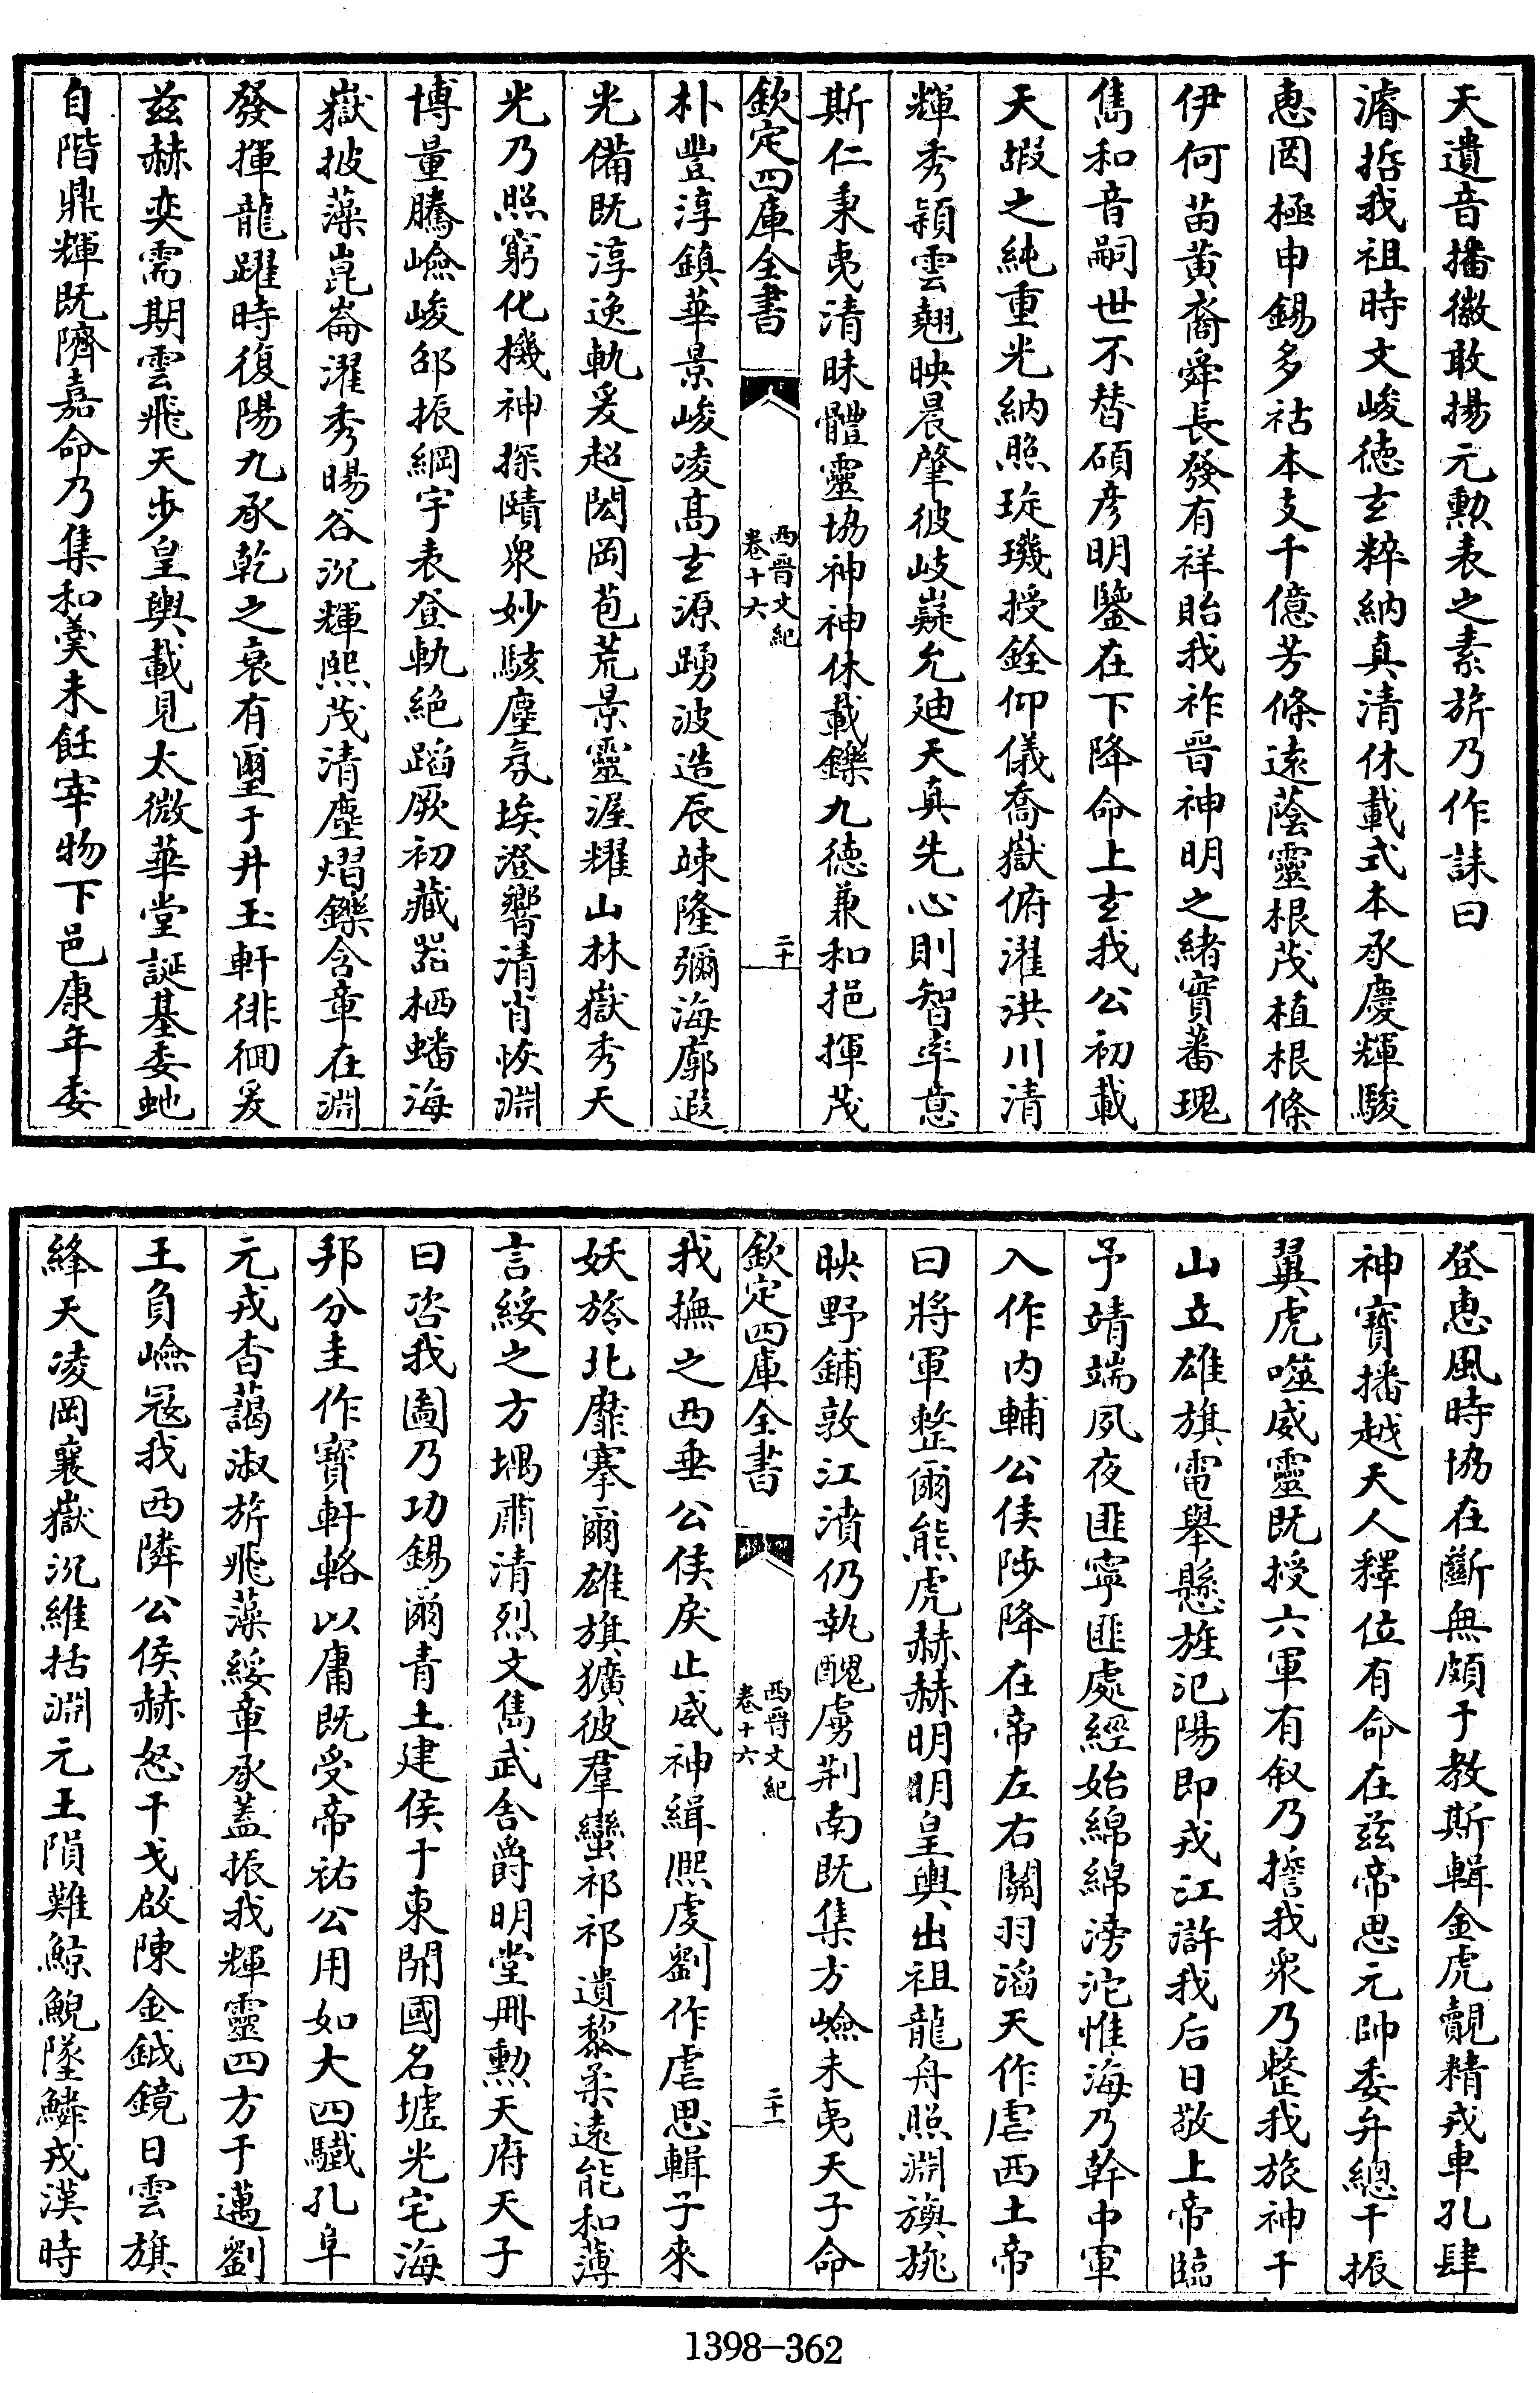 天遺音播徽敢揚元勲表之素旂乃作誄曰
濬哲我祖時文峻徳玄粹納真清休載式本承慶輝駿
恵罔極申錫多祜本支千億芳條逺蔭靈根茂植根條
伊何苗黄裔舜長發有祥貽我祚晉神明之緒寳蕃瑰
雋和音嗣世不替碩彦明鑒在下降命上玄我公初載
天嘏之純重光納照琁璣授銓仰儀喬嶽俯濯洪川清
輝秀穎雲翹映晨肇彼岐嶷允廸天真先心則智率意
斯仁秉夷清昧體靈協神神休載鑠九徳兼和挹揮茂
欽定四庫全書
西晉文紀
卷十六
二十
朴豐淳鎮華景峻凌髙玄源踴波造辰竦隆彌海廓遐
光備既淳逸軌爰超閎岡苞荒景靈渥耀山林嶽秀天
光乃照窮化機神探賾衆妙駭塵氛埃澄響清肖恢淵
博量騰嶮峻邵振綱宇表登軌絶蹈厥初藏器栖蟠海
嶽披藻崑崙濯秀暘谷沉輝熙茂清塵熠鑠含章在淵
發揮龍躍時復陽九承乾之衰有璽于井玉軒徘徊爰
兹赫奕需期雲飛天步皇輿載見太微華堂誕基委虵
自階鼎輝既隮嘉命乃集和羮未飪宰物下邑康年委
登恵風時協在斷無頗于教斯輯金虎覿精戎車孔肆
神寳播越天人釋位有命在兹帝思元帥委弁總干振
翼虎噬威靈既授六軍有叙乃誓我衆乃整我旅神干
山立雄旗電舉懸旌汜陽即戎江滸我后日敬上帝臨
予靖端夙夜匪寧匪處經始綿綿滂沱惟海乃幹中軍
入作内輔公侯陟降在帝左右闗羽滔天作虐西土帝
曰將軍整爾熊虎赫赫明明皇輿出祖龍舟照淵旟旐
映野鋪敦江濆仍執醜虜荆南既集方嶮未夷天子命
欽定四庫全書
西晉文紀
卷十六
二十一
我撫之西垂公侯戾止威神緝熙虔劉作虐思輯子來
妖旍北靡搴爾雄旗獷彼羣蠻祁祁遺黎柔逺能和薄
言綏之方堣肅清烈文雋武舍爵明堂冊勲天府天子
曰咨我圖乃功錫爾青土建侯于東開國名墟光宅海
邦分圭作寳軒輅以庸既受帝祐公用如大四驖孔阜
元戎杳藹淑旂飛藻綏章承蓋振我輝靈四方于邁劉
王負嶮冦我西隣公侯赫怒干戈啟陳金鉞鏡日雲旗
絳天凌岡襄嶽沉維括淵元王隕難鯨鯢墜鱗戎漢時
1398-362